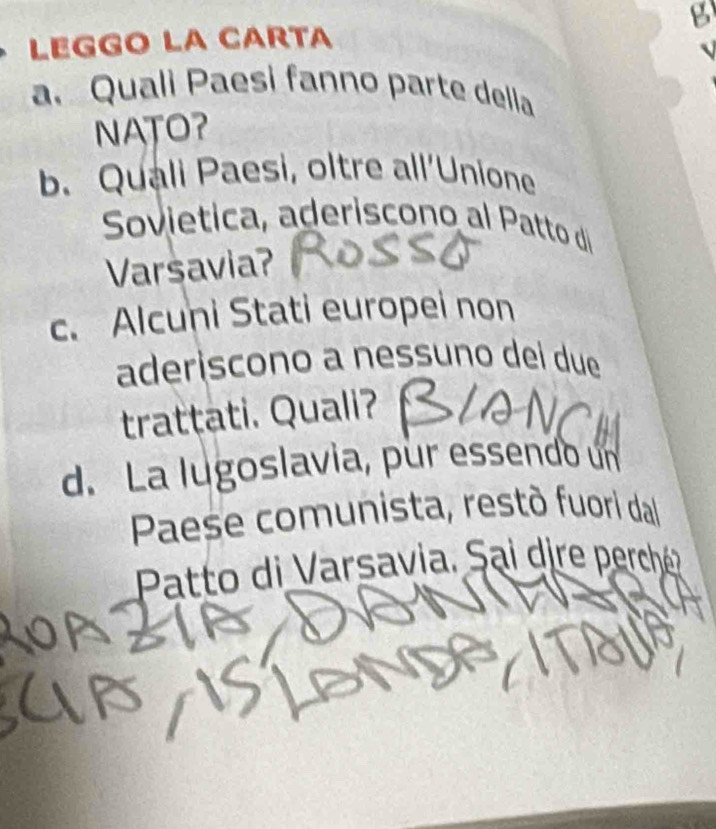 LEGGO LA CARTA
a. Quali Paesi fanno parte della
NATO?
b. Quali Paesi, oltre all'Unione
Sovietica, aderiscono al Patto di
Varsavia? ROSSO
c. Alcuni Stati europei non
aderiscono a nessuno dei due
trattati. Quali? BIANCHI
d. La Iugoslavia, pur essendo un
Paese comunista, restò fuori dal
Patto di Varsavia. Sai dire perché?
ROAZIA, DANIMARCA
CIA, ISLANDA, ITALIA,